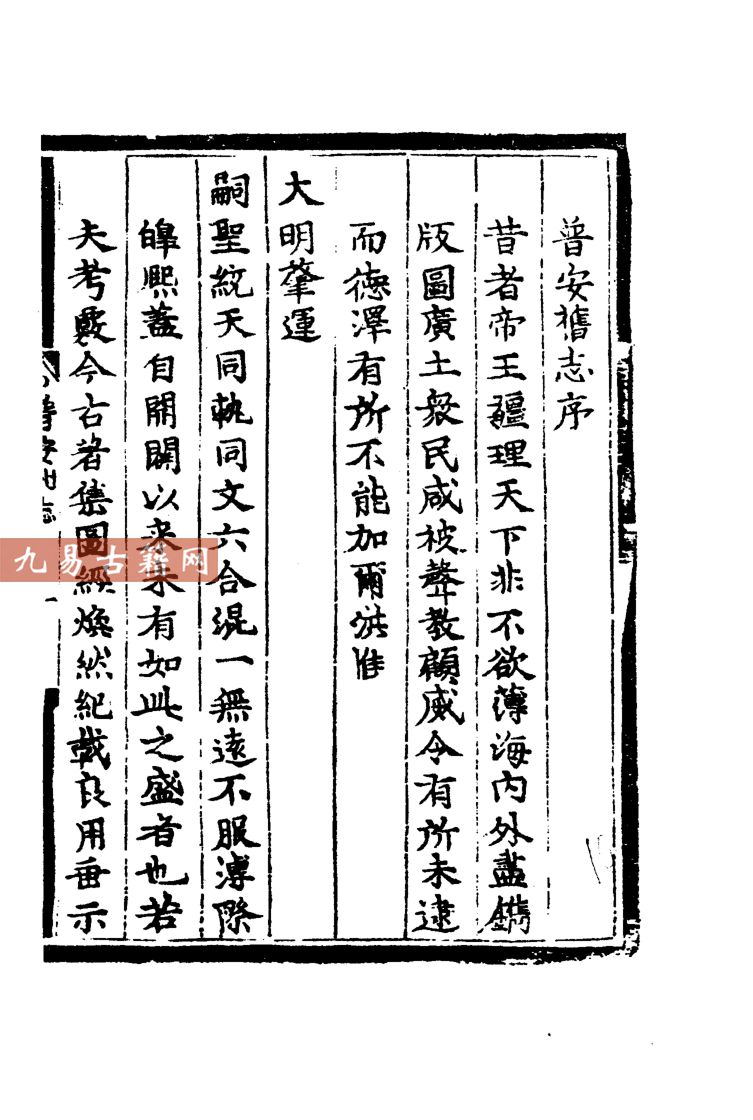 普安舊志序
昔者帝王疆理天下非不欲薄海內外盡鐫
版圖廣土衆民咸被聲教顧威令有所未逮
而德澤有所不能加爾洪惟
大明肇運
嗣聖統天同軌同文六合混一無遠不服溥際
皥熙蓋自開闢以來未有如此之盛者也若
夫考覈今古著集圖經煥然紀載良用垂示
普安州志
一
九易古籍网